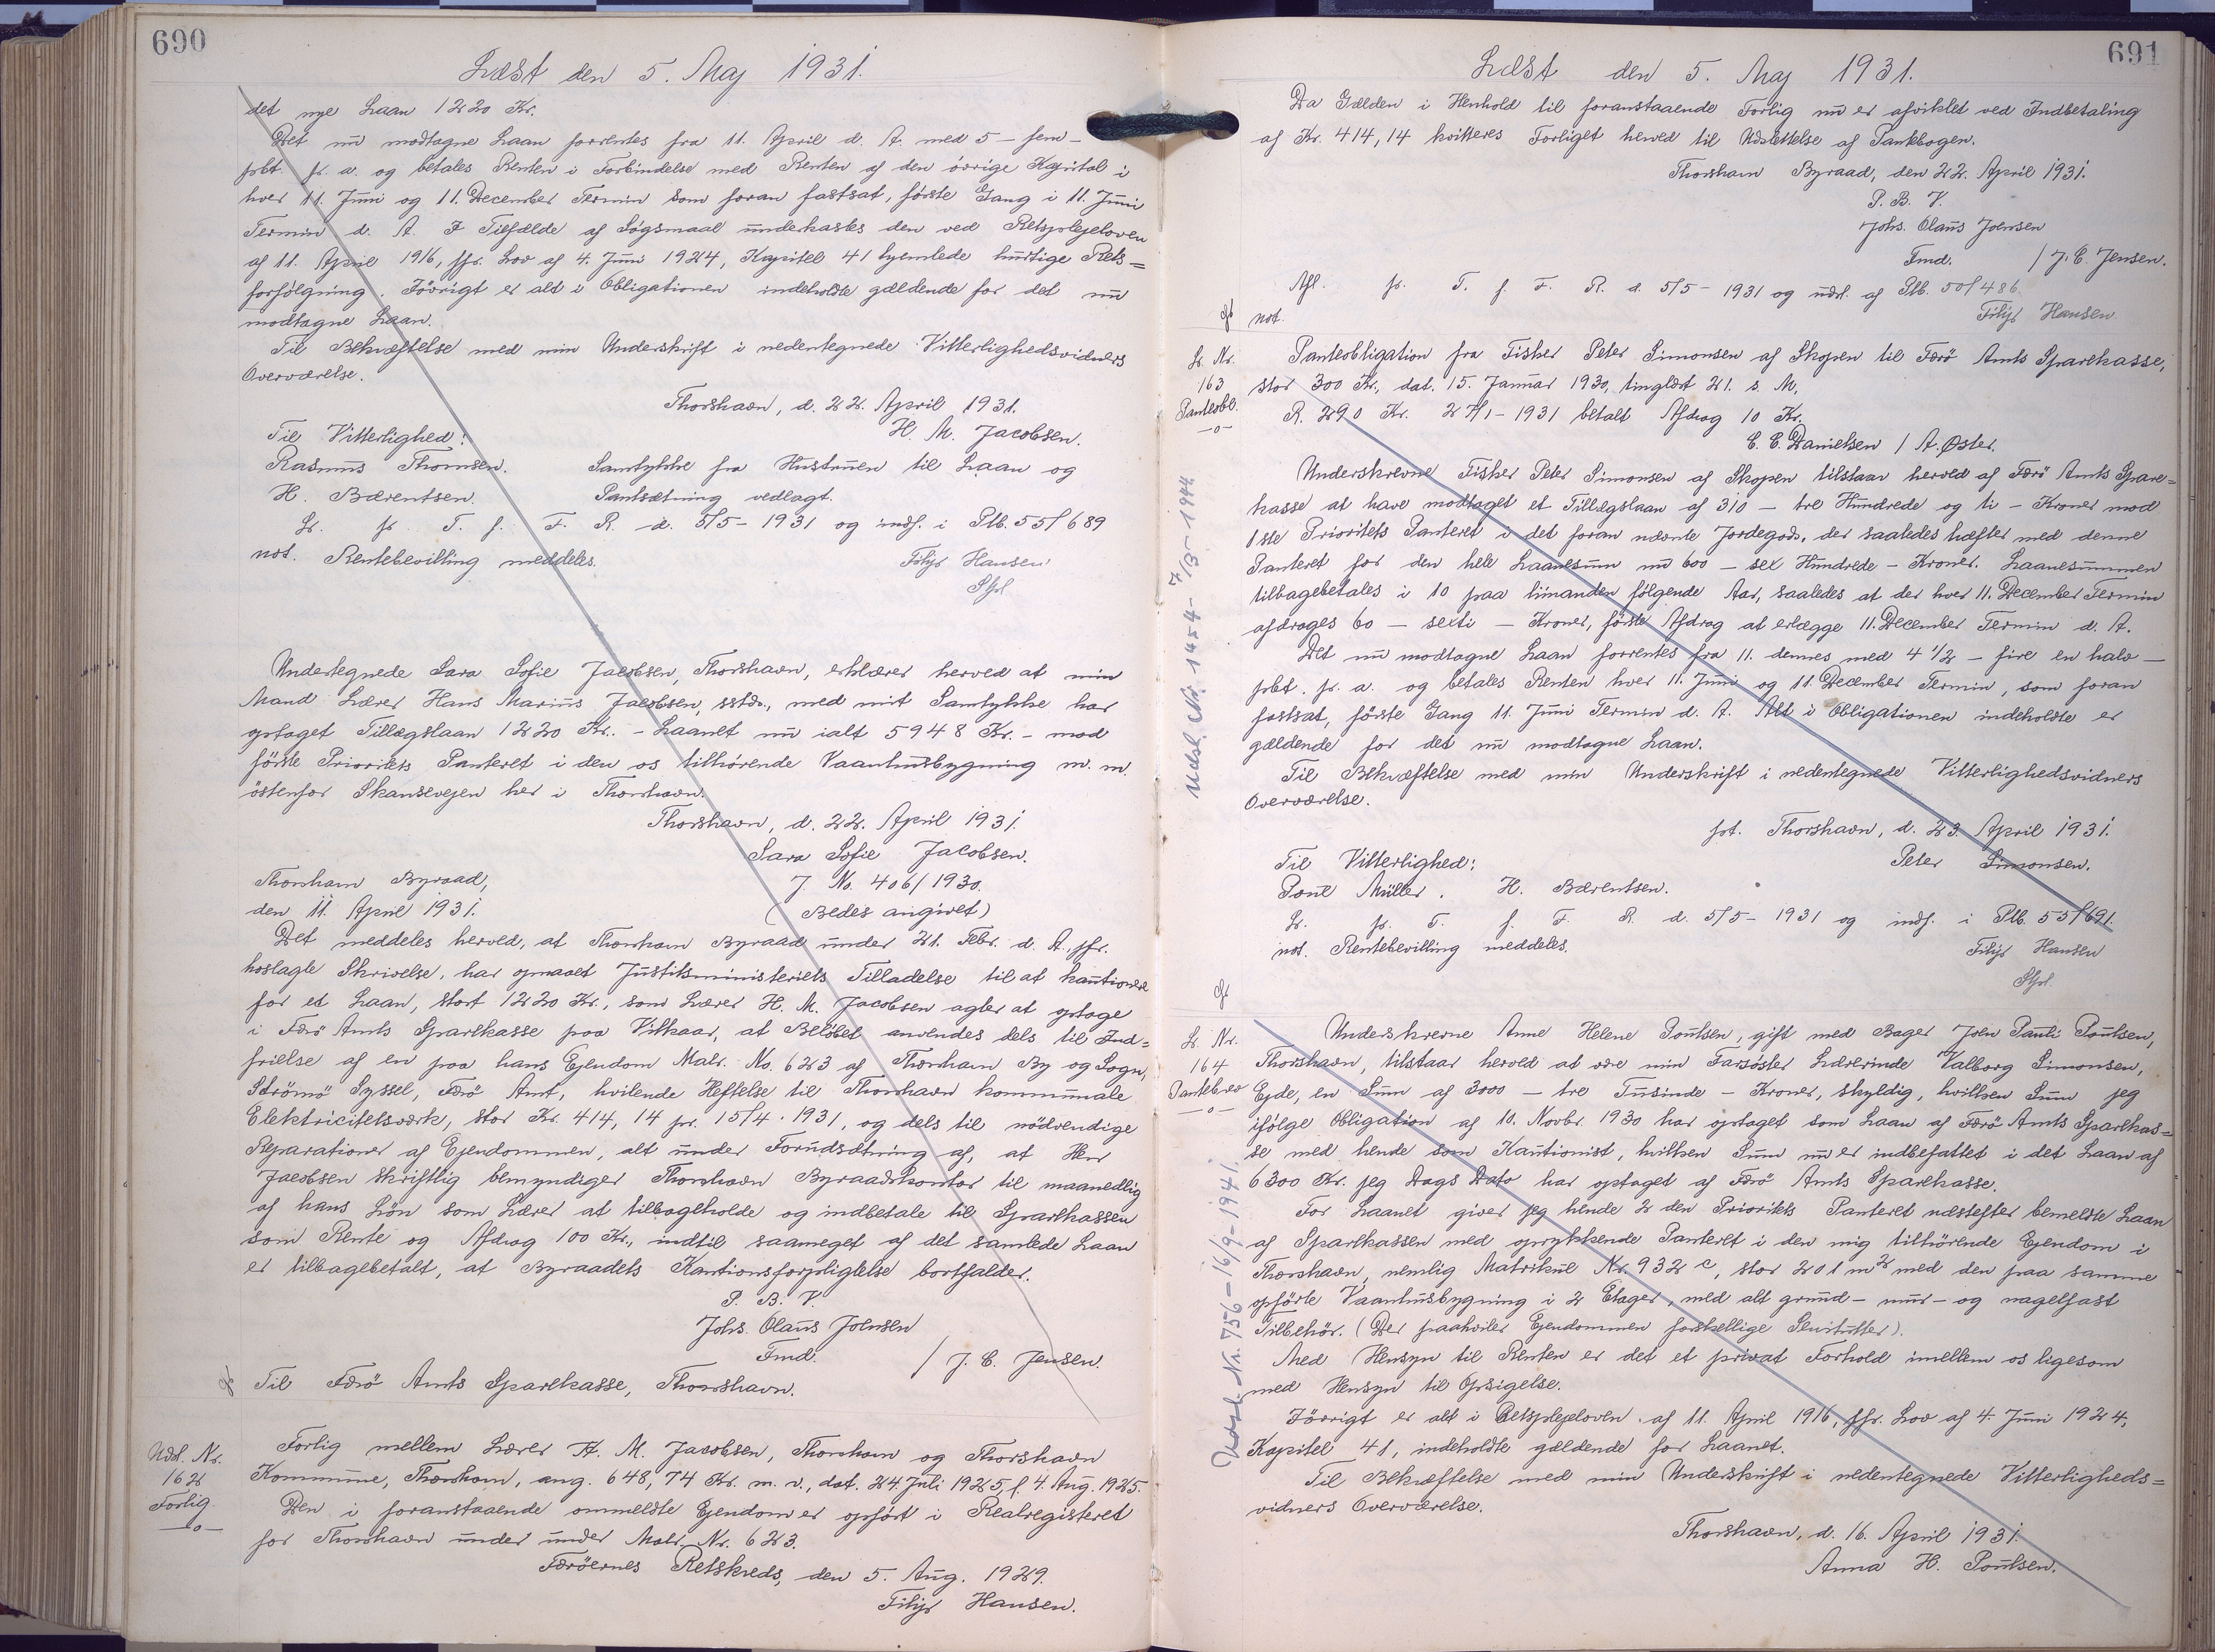 690
Læst den 5. Maj 1931.
det nye Laan 1220 Kr.
Det nu modtagne Laan forrentes fra 11. April d. A. med 5 – fem –
pct. p. a. og betales Renten i Forbindelse med Renten af den øvrige Kapital i
hver 11. Juni og 11. December Termin som foran fastsat, første Gang i 11. Juni
Termin d. A. I Tilfælde af Søgsmaal underkastes den ved Retsplejeloven
af 11. April 1916, jfr. Lov af 4. Juni 1924, Kapitel 41 hjemlede hurtige Rets=
forfølgning. Iøvrigt er alt i Obligationen indeholdte gældende for det nu
modtagne Laan.
Til Bekræftelse med min Underskrift i nedentegnede Vitterlighedsvidners
Overværelse.
Thorshavn, d. 22. April 1931.
H. M. Jacobsen.
Til Vitterlighed:
Rasmus Thomsen. Samtykke fra Hustruen til Laan og
H. Bærentsen. Pantsætning vedlagt.
Lr. pr. T. f. F. R. d. 5/5 – 1931 og indf. i Ptb. 55/689
not. Rentebevilling meddeles.
Filip Hansen
Undertegnede Sara Sofie Jacobsen, Thorshavn, erklærer herved at min
Mand Lærer Hans Marius Jacobsen, sstds., med mit Samtykke har
optaget Tillægslaan 1220 Kr. – Laanet nu ialt 5948 Kr. – mod
første Prioritets Panteret i den os tilhørende Vaanhusbygning m. m.
østenfor Skansevejen her i Thorshavn.
Thorshavn, d. 22. April 1931.
Sara Sofie Jacobsen.
Thorshavn Byraad,
J No. 406/1930.
den 11. April 1931.
(Bedes angivet)
Det meddeles herved, at Thorshavn Byraad under 21. Febr. d. A., jfr.
hoslagte Skrivelse, har opnaaet Justitsministeriets Tilladelse til at kautionere
for et Laan, stort 1220 Kr., som Lærer H. M. Jacobsen agter at optage
i Færø Amts Sparekasse paa Vilkaar, at Beløbet anvendes dels til Ind=
frielse af en paa hans Ejendom Matr. No. 623 af Thorshavn By og Sogn,
Strømø Syssel, Færø Amt, hvilende Heftelse til Thorshavn kommunale
Elektricitetsværk, stor Kr. 414,14 pr. 15/4. 1931, og dels til nødvendige
Reparationer af Ejendommen, alt under Forudsætning af, at Herr
Jacobsen skriftlig bemyndiger Thorshavn Byraadskontor til maanedlig
af hans Løn som Lærer at tilbageholde og indbetale til Sparekassen
som Rente og Afdrag 100 Kr., indtil saameget af det samlede Laan
er tilbagebetalt, at Byraadets Kautionsforpligtelse bortfalder.
P. B. V.
Johs. Olaus Joensen
Fmd. / J. C. Jensen.
Til Færø Amts Sparekasse, Thorshavn.
Udsl. Nr.
162
Forlig
—o—
Forlig mellem Lærer H. M. Jacobsen, Thorshavn og Thorshavn
Kommune, Thorshavn, ang. 648,74 Kr. m. v., dat. 24. Juli 1925, l. 4. Aug. 1925.
Den i foranstaaende ommeldte Ejendom er opført i Realregisteret
for Thorshavn under under Matr. Nr. 623.
Færøernes Retskreds, den 5. Aug. 1929.
Filip Hansen.
691
Læst den 5. Maj 1931.
Da Gælden i Henhold til foranstaaende Forlig nu er afviklet ved Indbetaling
af Kr. 414,14 kvitteres Forliget herved til Udslettelse af Pantebogen.
Thorshavn Byraad, den 22. April 1931.
P. B. V.
Johs. Olaus Joensen
Fmd. / J. C. Jensen.
Afl. pr. T. f. F. R. d. 5/5 – 1931 og udsl. af Ptb. 50/486
not. Filip Hansen.
Lr. Nr.
163
Panteobl.
—o—
Panteobligation fra Fisker Peter Simonsen af Skopen til Færø Amts Sparekasse,
stor 300 Kr., dat. 15. Januar 1930, tinglæst 21. s. M.
R. 290 Kr. 27/1 – 1931 betalt Afdrag 10 Kr.
C. C. Danielsen / A. Øster.
Underskrevne Fisker Peter Simonsen af Skopen tilstaar herved af Færø Amts Spare=
kasse at have modtaget et Tillægslaan af 310 – tre Hundrede og ti – Kroner mod
1ste Prioritets Panteret i det foran nævnte Jordegods, der saaledes hæfter med denne
Panteret for den hele Laanesum nu 600 – sex Hundrede – Kroner. Laanesummen
tilbagebetales i 10 paa hinanden følgende Aar, saaledes at der hver 11. December Termin
afdrages 60 – sexti – Kroner, første Afdrag at erlægge 11. December Termin d. A.
Det nu modtagne Laan forrentes fra 11. dennes med 4 1/2 – fire en halv –
pct. p. a. og betales Renten hver 11. Juni og 11. December Termin, som foran
fastsat, første Gang 11. Juni Termin d. A. Alt i Obligationen indeholdte er
gældende for det nu modtagne Laan.
Til Bekræftelse med min Underskrift i nedentegnede Vitterlighedsvidners
Overværelse.
pt. Thorshavn, d. 23. April 1931.
Peter Simonsen.
Til Vitterlighed:
Poul Müller. H. Bærentsen.
Lr. pr. T. f. F. R. d. 5/5 – 1931 og indf. i Ptb. 55/691.
not. Rentebevilling meddeles.
Filip Hansen
Udsl. Nr. 1454 – 7/3 – 1944
Lr. Nr.
164
Pantebrev
—o—
Underskrevne Anne Helene Poulsen, gift med Bager Joen Pauli Poulsen,
Thorshavn, tilstaar herved at være min Farsøster Lærerinde Valborg Simonsen,
Ejde, en Sum af 3000 – tre Tusinde – Kroner, skyldig, hvilken Sum jeg
ifølge Obligation af 10. Novbr. 1930 har optaget som Laan af Færø Amts Sparekas=
se med hende som Kautionist, hvilken Sum nu er indbefattet i det Laan af
6300 Kr. jeg Dags Dato har optaget af Færø Amts Sparekasse.
For Laanet giver jeg hende 2den Prioritets Panteret næstefter bemeldte Laan
af Sparekassen med oprykkende Panteret i den mig tilhørende Ejendom i
Thorshavn, nemlig Matrikul Nr. 932 c, stor 201 m2 med den paa samme
opførte Vaanhusbygning i 2 Etager, med alt grund- mur- og nagelfast
Tilbehør. (Der paahviler Ejendommen forskellige Servitutter).
Med Hensyn til Renten er det et privat Forhold imellem os ligesom
med Hensyn til Opsigelse.
Iøvrigt er alt i Retsplejeloven af 11. April 1916, jfr. Lov af 4. Juni 1924,
Kapitel 41, indeholdte gældende for Laanet.
Til Bekræftelse med min Underskrift i nedentegnede Vitterligheds=
vidners Overværelse.
Thorshavn, d. 16. April 1931.
Anna H. Poulsen.
Udsl. Nr. 756 – 16/9 – 1941.